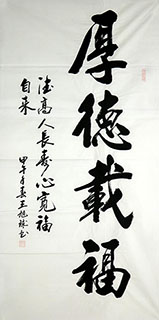 厚德載福
德高人長壽心寬福
自来
甲午年春王旭林书